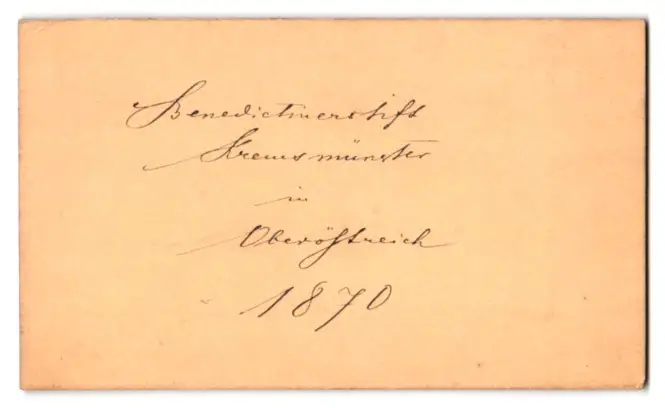 Benedictinerstift
Kremsmünster
in
Oberöstreich
1870